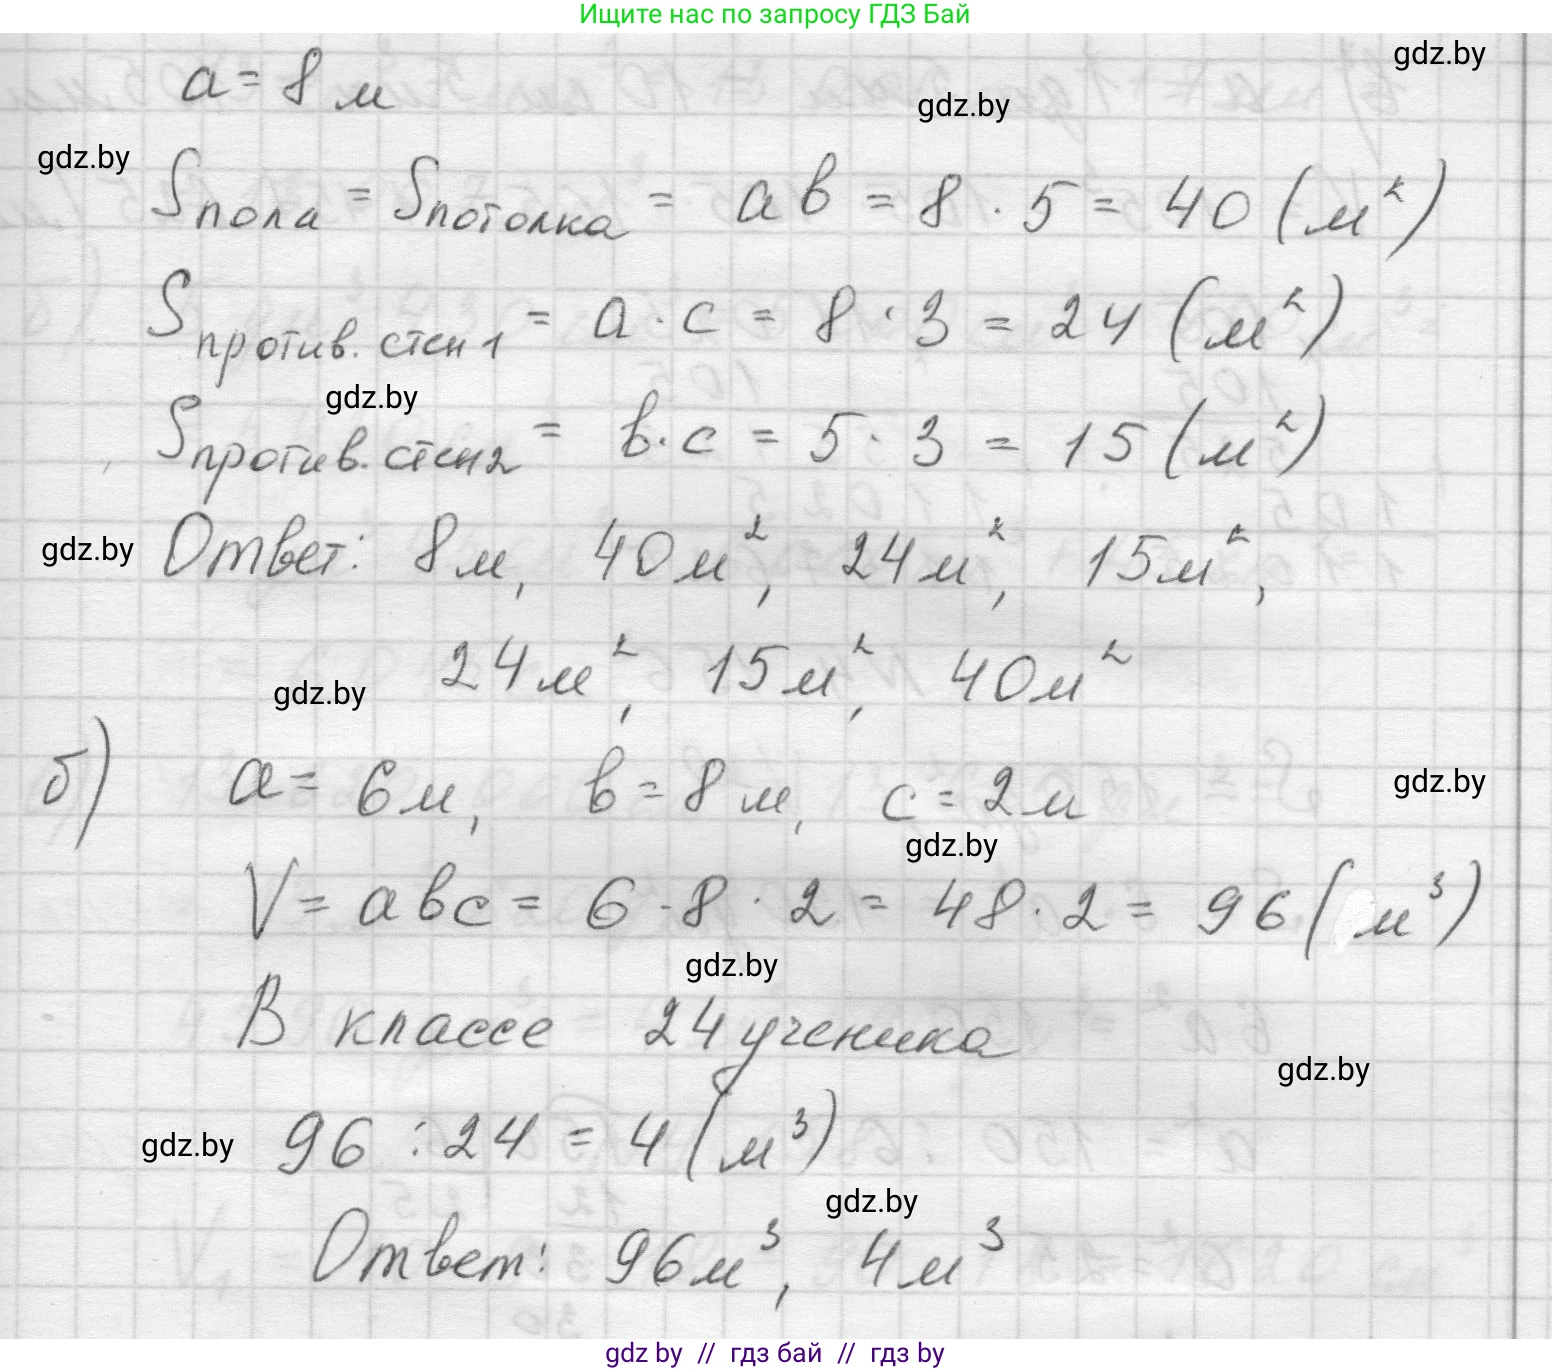 Ищите нас по запросу ГДЗ Бай
gdz.by
a = 8 м
gdz.by
gdz.by
Sпола = Sпотолка = ав = 8 · 5 = 40 (м²)
Sпротив. стен 1 = a · c = 8 · 3 = 24 (м²)
gdz.by
Sпротив. стен 2 = в · c = 5 · 3 = 15 (м²)
gdz.by
Ответ: 8 м, 40 м², 24 м², 15 м²,
24 м², 15 м², 40 м²
gdz.by
б) a = 6 м, в = 8 м, c = 2 м
gdz.by
gdz.by
V = a в c = 6 · 8 · 2 = 48 · 2 = 96 (м³)
gdz.by
В классе 24 ученика
gdz.by
96 : 24 = 4 (м³)
gdz.by
gdz.by
Ответ: 96 м³, 4 м³
gdz by // гдз бай // гдз by